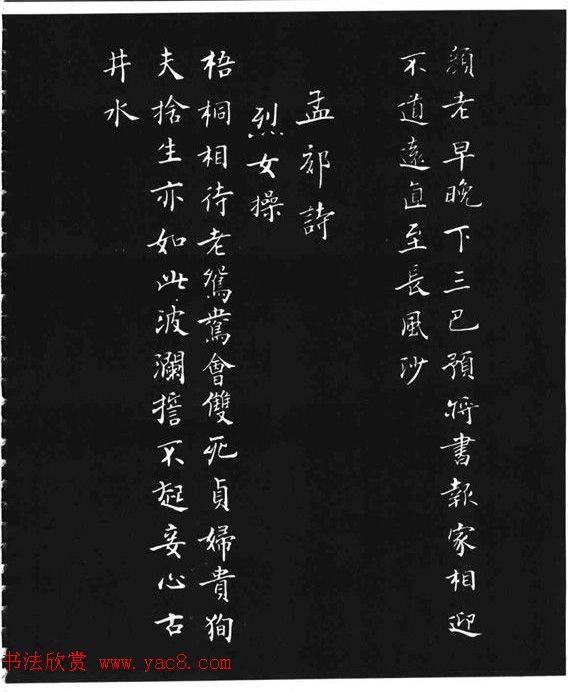 顏老早晚下三巴預將書報家相迎
不道遠直至長風沙
孟郊詩
烈女操
梧桐相待老鴛鴦會雙死貞婦貴徇
夫捨生亦如此波瀾誓不起妾心古
井水
书法欣赏 www.yac8.com